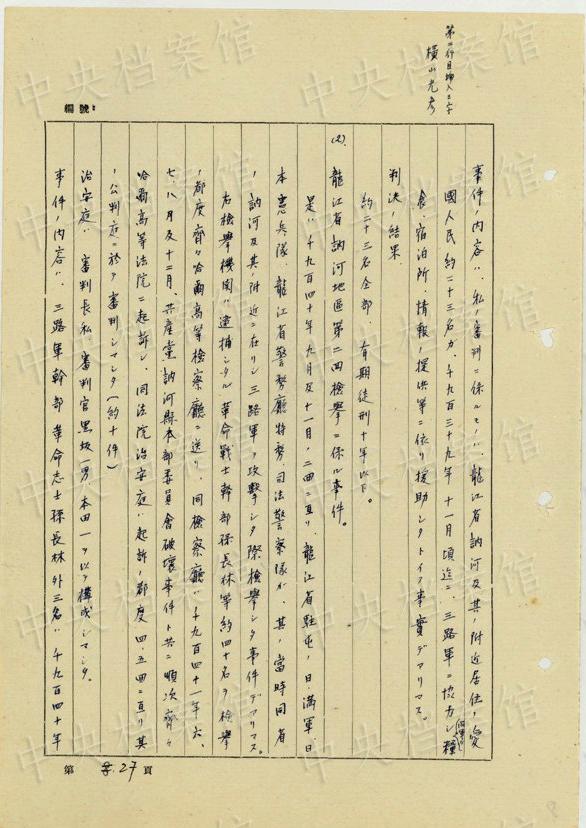 第二行目挿入三字
横山光彦
編號:
事件ノ内容ハ、私ノ審判ニ係ルモノハ、龍江省訥河及其ノ附近居住ノ愛
國人民約二十三名カ、千九百三十九年十一月頃迄ニ、三路軍ニ協力シ種
食、宿泊所、情報ノ提供等ニ依リ援助シタトイフ事實デアリマス。
判決ノ結果
約二十三名全部、有期徒刑十年以下。
(2) 龍江省訥河地區第二回檢擧ニ係ル事件。
是ハ千九百四十年九月及十一月ノ二回ニ亘リ、龍江省駐屯ノ日満軍、日
本憲兵隊、龍江省警務廳特務、司法警察隊ガ、其ノ當時同省
ノ訥河及其ノ附近ニ在リシ三路軍ヲ攻撃シタ際檢擧シタ事件デアリマス。
右檢擧機関ハ逮捕シタル革命戰士幹部孫長林等約四十名ヲ檢擧
ノ都度齊々哈爾高等檢察廳ニ送リ、同檢察廳ハ千九百四十一年六、
七、八月及十二月、共産黨訥河縣本部委員會破壊事件ト共ニ順次齊々
哈爾高等法院ニ起訴シ、同法院治安庭ハ起訴ノ都度四、五回ニ亘リ其
ノ公判庭ニ於テ審判シマシタ(約十件)
治安庭ハ審判長私、審判官黒坂一男、本田一ヲ以テ構成シマシタ。
事件ノ内容ハ、三路軍幹部革命志士孫長林外三名ハ千九百四十年
第 27 頁
中央档案馆